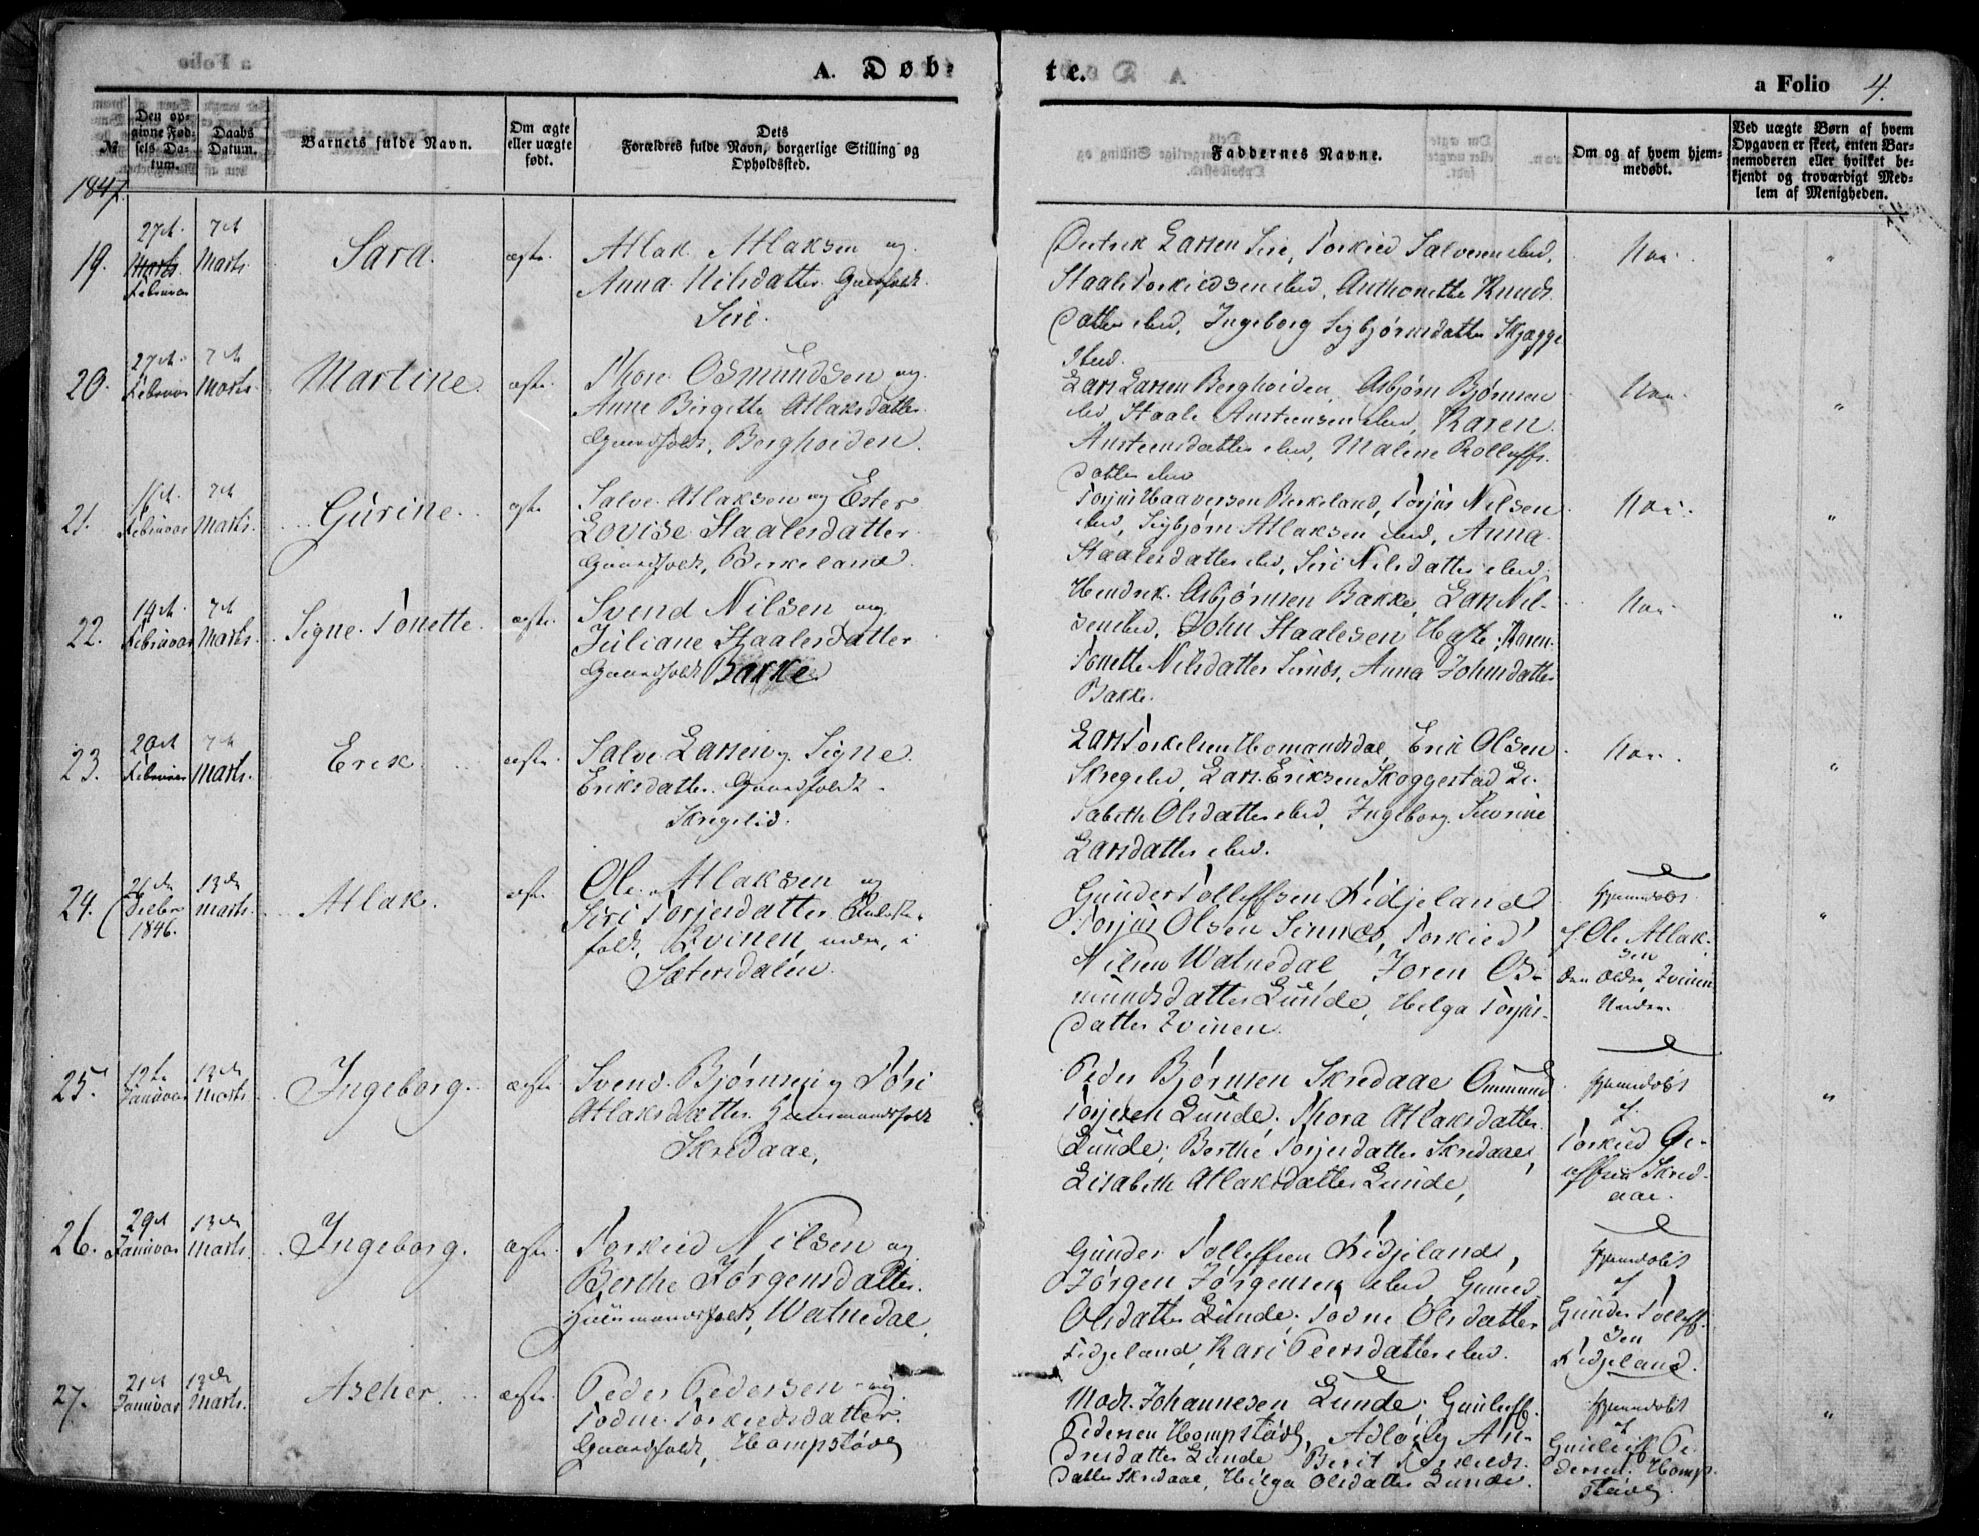 A. Døb-
te.
a Folio 4.
№
Den op-
givne Fød-
sels Da-
tum.
Daabs
Datum.
Barnets fulde Navn.
Om ægte
eller uægte
født.
Dets
Forældres fulde Navn, borgerlige Stilling og
Opholdssted.
Faddernes Navne.
Om og af hvem hjem-
medøbt.
Ved uægte Børn af hvem
Opgaven er skeet, enten Bar-
nemoderen eller hvilket be-
kjendt og troværdigt Med-
lem af Menigheden.
1847.
19.
27de
Marts
Februar
7de
Marts
Sara.
ægte.
Atlak Atlaksen og
Anna Nilsdatter Gaardfolk.
Sire.
Larsen Sire, Torkied Salvesen ibid,
Staale Torkiedsen ibid, Anthonette Knuds-
datter ibid, Ingeborg Sigbjørnsdatter Skjægge-
sted.
Nei.
"
20.
27de
Februar
7de
Marts
Martine.
ægte.
Thore Osmundsen og
Anne Birgitte Atlaksdatter
Gaardfolk, Bergheiden.
Lars Larsen Bergheiden, Asbjørn Bjørnsen
ibid, Staale Austeensen ibid, Karen
Austeensdatter ibid, Malene Rolleffs-
datter ibid
Nei.
"
21.
Februar
7de
Marts
Gurine.
ægte
Salve Atlaksen og Ester
Lovise Staalesdatter
Gaardfolk, Birkeland.
Torjus Haaversen Birkeland, Torjus Nilsen
ibid, Sigbjørn Atlaksen ibid, Anna
Staalesdatter ibid, Siri Nilsdatter ibid.
Nei.
"
22.
14de
Februar
7de
Marts.
Signe Tonette.
ægte.
Svend Nilsen og
Juliane Staalesdatter
Gaardfolk Bakke
Hendrik Asbjørnsen Bakke, Lars Nil-
sen ibid, John Staalesen, Karen
Tonette Nilsdatter, Anna Johnsdatter
Bakke.
Nei.
"
23.
20de
Februar
7de
Marts.
Erik
ægte.
Salve Larsen og Signe
Eriksdatter. Gaardfolk
Skregelid.
Lars Torkelsen Homandsdal, Erik Olsen
Skregelid, Lars Eriksen Skoggestad, Li-
sabeth Olsdatter ibid, Ingeborg Severine
Larsdatter ibid.
Nei.
"
24.
26de
Decbr
1846.
13de
Marts.
Atlak.
ægte.
Ole Atlaksen og
Siri Torjersdatter
folk, Qvinen, nedre, i
Sætersdalen.
Gunder Tolleffsen Fidjeland
Torjus Olsen Sinnes, Torkied
Nilsen Watnedal, Joren Os-
mundsdatter Lunde, Helga Torjus-
datter Qvinen.
Hjemdøbt
af Ole Atlak-
sen
den Ældre, Qvinen
Nedre.
"
25.
12te
Januar
13de
Marts
Ingeborg.
ægte
Svend Bjørnsen og Tøri
Atlaksdatter Huusmandsfolk
Skredaae,
Peder Bjørnsen Skredaae, Ommund
Torjesen Lunde, Thora Atlaksdatter
Lunde; Berthe Torjersdatter Skredaae,
Lisabeth Atlaksdatter Lunde,
Hjemdøbt
af
Torkied
Skred-
aae.
"
26.
29de
Januar
13de
Marts.
Ingeborg.
ægte.
Torkied Nilsen og
Berthe Jørgensdatter
Huusmandsfolk, Watnedal
Gunder Tolleffsen Fidjeland,
Jørgen Jørgensen ibid, Gunild
Olsdatter Lunde, Todne Olsdatter
Fidjeland, Kari Peersdatter ibid.
Hjemdøbt
af
Gunder Tolleff-
sen
Fidjeland.
27.
21de
Januar
13de
Marts.
Ascher.
ægte.
Peder Pedersen og
Todne Torkiedsdatter
Gaardfolk, Hompstøvl
Mads Johannesen Lunde, Gunleff
Pedersen Hompstøvl, An-
dersdatter Lunde, Berit Torkields-
datter Skredaae, Helga Olsdatter Lunde.
Hjemdøbt
af
Gunleiff Pe-
dersen Homp-
støvl.
"